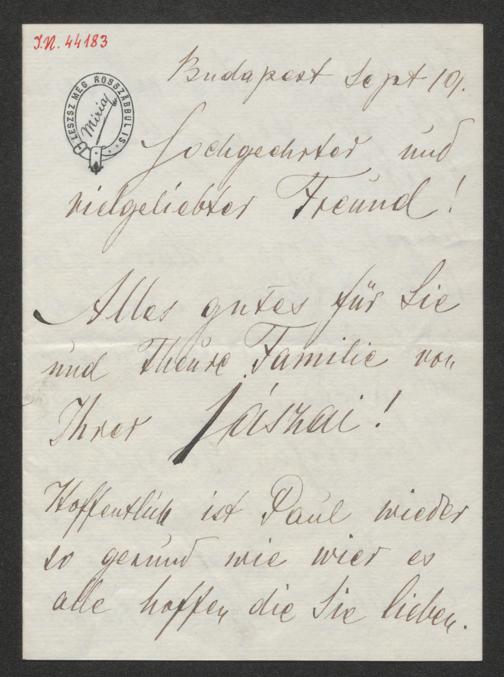 I.N. 44183
LESZSZ MÉG ROSSZABBUL IS
Mária
Budapest Sept 19.
Hochgeehrter und
vielgeliebter Freund!
Alles gutes für Sie
und Theure Familie von
Ihrer Jászai!
Hoffentlich ist Paul wieder
so gesund wie wier es
alle hoffen die Sie lieben.